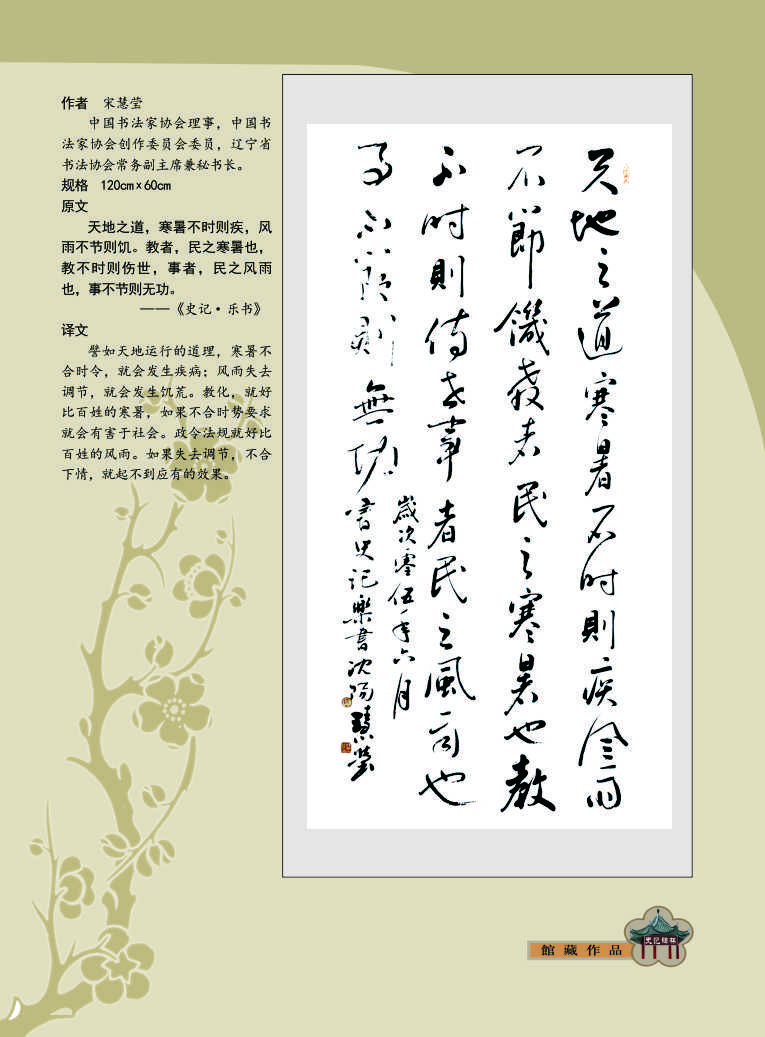 作者 宋慧莹
中国书法家协会理事，中国书
法家协会创作委员会委员，辽宁省
书法协会常务副主席兼秘书长。
规格 120cm×60cm
原文
天地之道，寒暑不时则疾，风
雨不节则饥。教者，民之寒暑也，
教不时则伤世，事者，民之风雨
也，事不节则无功。
——《史记·乐书》
译文
譬如天地运行的道理，寒暑不
合时令，就会发生疾病；风雨失去
调节，就会发生饥荒。教化，就好
比百姓的寒暑，如果不合时势要求
就会有害于社会。政令法规就好比
百姓的风雨。如果失去调节，不合
下情，就起不到应有的效果。
天地之道寒暑不時則疾風雨
不節饑教者民之寒暑也教
不時則傷世事者民之風雨也
事不節則無功
歲次零伍年六月
書史記樂書沈陽慧瑩
館藏作品
史記碑林